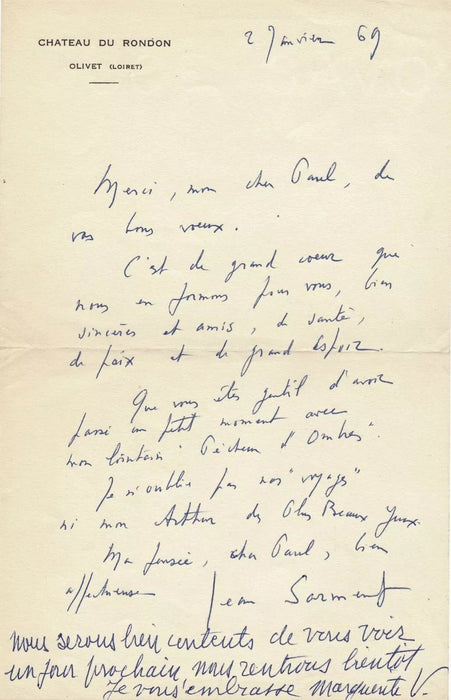 CHATEAU DU RONDON
OLIVET (LOIRET)
2 Janvier 69
Merci, mon cher Paul, de
vos bons voeux.
C'est de grand coeur que
nous en formons pour vous, bien
sincères et amis, de santé,
de paix et de grand espoir.
Que vous êtes gentil d'avoir
passé un petit moment avec
mon lointain "Pêcheur d'Ombres".
Je n'oublie pas nos "voyages"
ni mon Arthur des Plus Beaux Yeux.
Ma pensée, cher Paul, bien
affectueuse
Jean Sarment
nous serons bien contents de vous voir
un jour prochain nous rentrons bientôt
Je vous embrasse Marguerit V